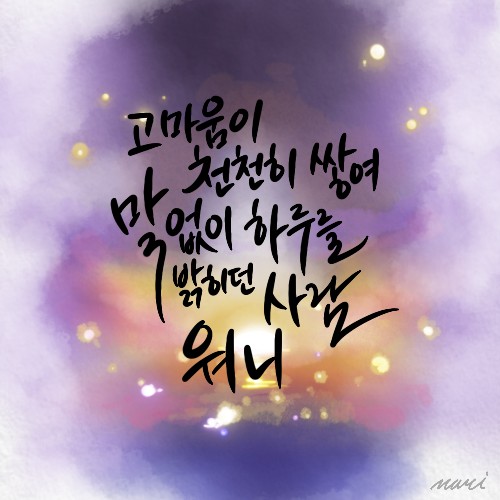 고마움이
천천히 쌓여
말없이 하루를
밝히던 사람
워니